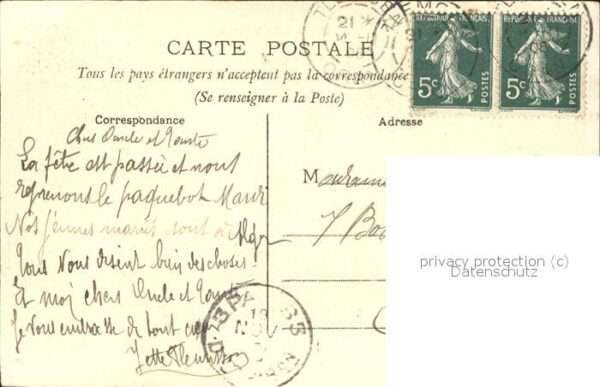 CARTE POSTALE
Tous les pays étrangers n'acceptent pas la correspondance
(Se renseigner à la Poste)
REPUBLIQUE FRANÇAISE
5c
POSTES
REPUBLIQUE FRANÇAISE
5c
POSTES
Correspondance
Chers Oncle et Tante
La fête est passée et nous
reprenons le paquebot
Nos jeunes mariés sont à
Alger
Tous vous disent bien des choses
Et moi chers Oncle et Tante
Je vous embrasse de tout cœur
Adresse
privacy protection (c)
Datenschutz